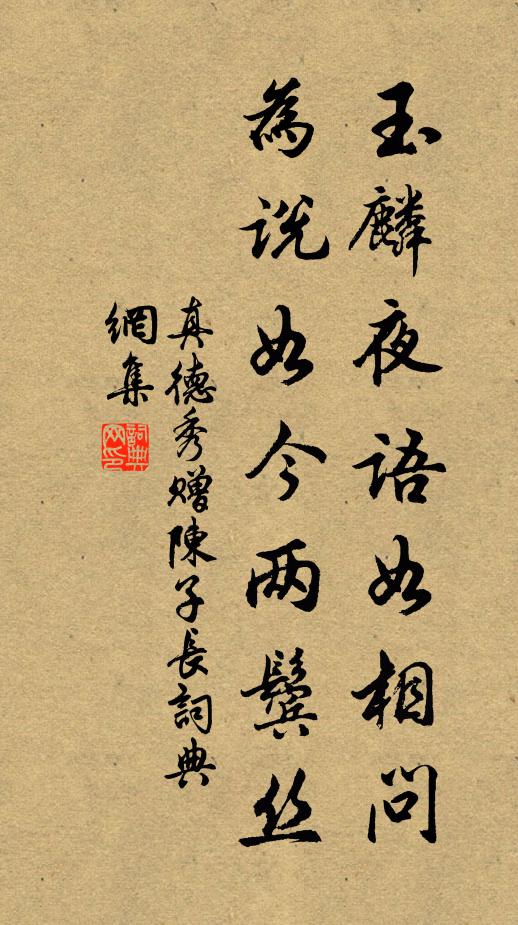 玉麟夜语如相问
為说如今两鬓丝
真德秀赠陳子長詞典
網集
詞典
网印